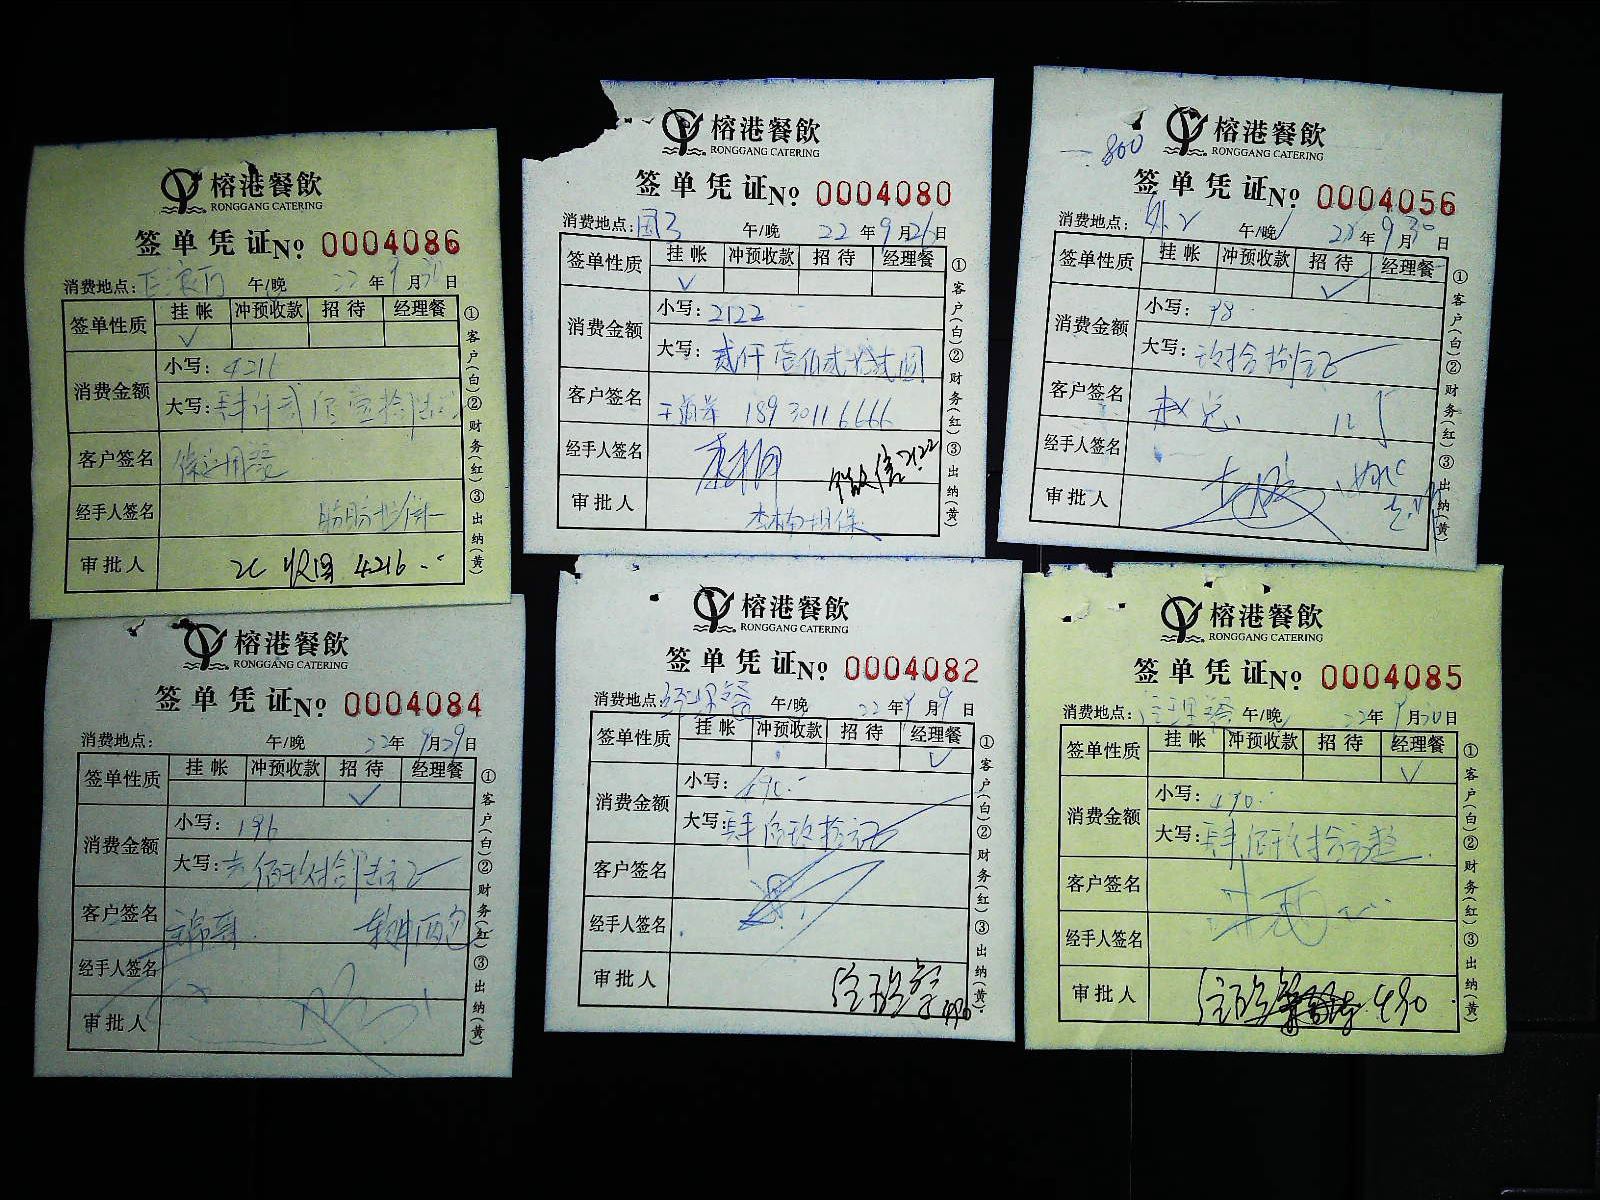 榕港餐飲
RONGGANG CATERING
签单凭证 No 0004086
消费地点: 午/晚 22 年 9 月 30 日
签单性质 挂帐 冲预收款 招待 经理餐
✓
消费金额 小写: 4216
大写: 肆仟贰佰壹拾陆元
客户签名
经手人签名
审批人 收回 4216
①客户(白)②财务(红)③出纳(黄)
榕港餐飲
RONGGANG CATERING
签单凭证 No 0004080
消费地点: 国3 午/晚 22 年 9 月 26 日
签单性质 挂帐 冲预收款 招待 经理餐
✓
消费金额 小写: 2122
大写: 贰仟壹佰贰拾贰圆
客户签名 189 3011 6666
经手人签名 微信 2122
审批人 担保
①客户(白)②财务(红)③出纳(黄)
榕港餐飲
RONGGANG CATERING
800
签单凭证 No 0004056
消费地点: 外2 午/晚 22 年 9 月 30 日
签单性质 挂帐 冲预收款 招待 经理餐
✓
消费金额 小写: 98
大写: 玖拾捌元正
客户签名 赵总
经手人签名
审批人
①客户(白)②财务(红)③出纳(黄)
榕港餐飲
RONGGANG CATERING
签单凭证 No 0004084
消费地点: 午/晚 22 年 9 月 29 日
签单性质 挂帐 冲预收款 招待 经理餐
✓
消费金额 小写: 196
大写: 壹佰玖拾陆元正
客户签名
经手人签名
审批人
①客户(白)②财务(红)③出纳(黄)
榕港餐飲
RONGGANG CATERING
签单凭证 No 0004082
消费地点: 经理餐 午/晚 22 年 9 月 9 日
签单性质 挂帐 冲预收款 招待 经理餐
✓
消费金额 小写: 490.-
大写: 肆佰玖拾元正
客户签名
经手人签名
审批人 经理餐 490
①客户(白)②财务(红)③出纳(黄)
榕港餐飲
RONGGANG CATERING
签单凭证 No 0004085
消费地点: 经理餐 午/晚 22 年 9 月 30 日
签单性质 挂帐 冲预收款 招待 经理餐
✓
消费金额 小写: 490.-
大写: 肆佰玖拾元整
客户签名
经手人签名
审批人 经理餐 490
①客户(白)②财务(红)③出纳(黄)